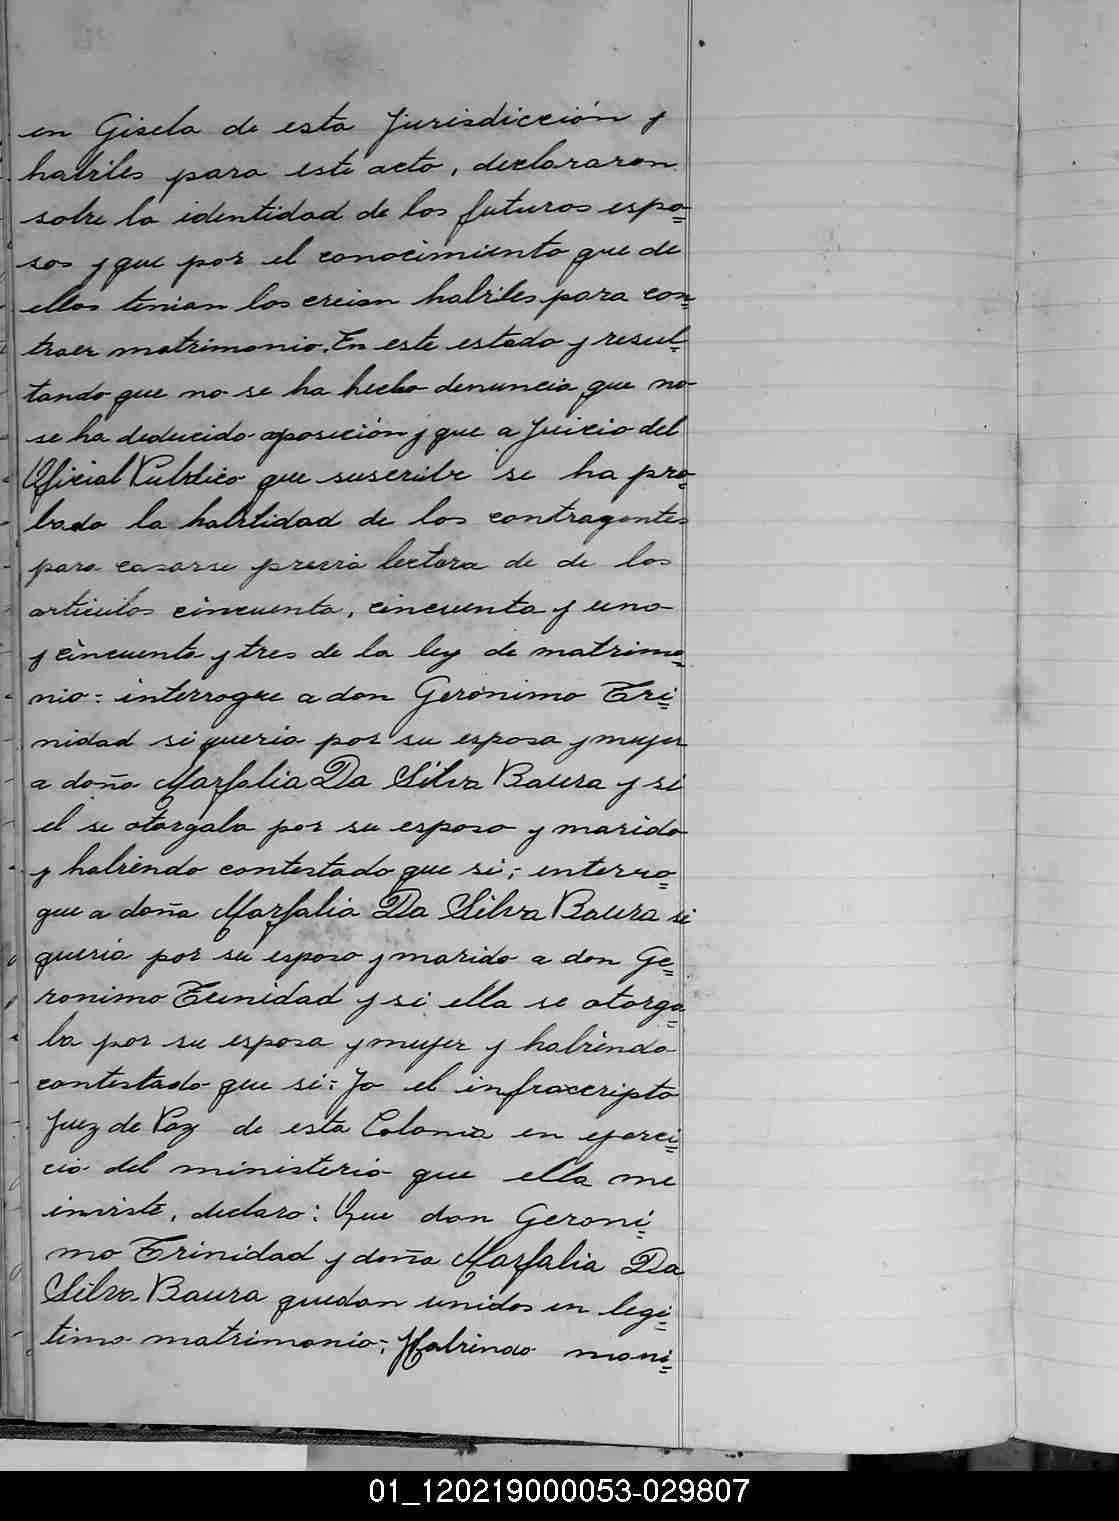 en Gisela de esta Jurisdicción y
habiles para este acto, declararon
sobre la identidad de los futuros espo=
sos y que por el conocimiento que de
ellos tenian los creian habiles para con=
traer matrimonio. En este estado y resul=
tando que no se ha hecho denuncia, que no
se ha deducido oposición y que a juicio del
Oficial Publico que suscribe se ha pro=
bado la habilidad de los contragentes
para casarse previa lectura de de los
articulos cincuenta, cincuenta y uno
y cincuenta y tres de la ley de matrimo=
nio: interrogue a don Gerónimo Tri=
nidad si queria por su esposa y mujer
a doña Marfalia Da Silva Baura y si
el se otorgaba por su esposo y marido
y habiendo contestado que si; interro=
gue a doña Marfalia Da Silva Baura si
queria por su esposo y marido a don Ge=
ronimo Trinidad y si ella se otorga=
ba por su esposa y mujer y habiendo
contestado que si: Yo el infraccripto
Juez de Paz de esta Colonia en ejerci=
cio del ministerio que ella me
inviste, declaro: Que don Geroni=
mo Trinidad y doña Marfalia Da
Silva Baura quedan unidos en legi=
timo matrimonio; Habiendo mani=
01_120219000053-029807